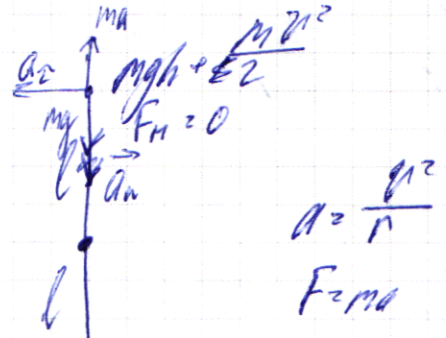 ma
a_τ
mgh + mv²/2
mg
F_H = 0
l
a_n
a = v²/r
F = ma
l